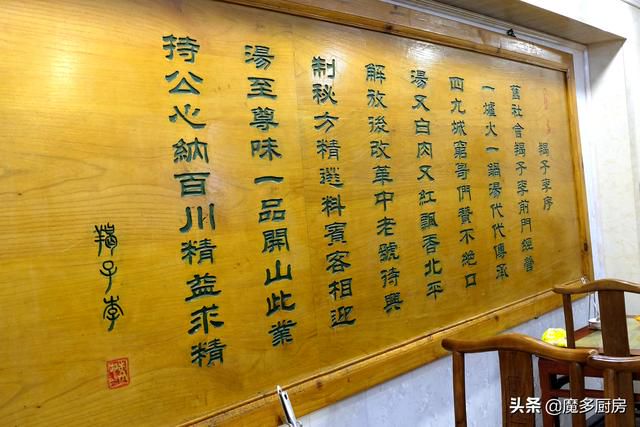 羯子李序
舊社會羯子李前門經營
一爐火一鍋湯代代傳承
四九城窮哥們贊不絕口
湯又白肉又紅飄香北平
解放後改革中老號待興
制秘方精選料賓客相迎
湯至尊味一品開山此業
持公心納百川精益求精
羯子李
头条@魔多厨房